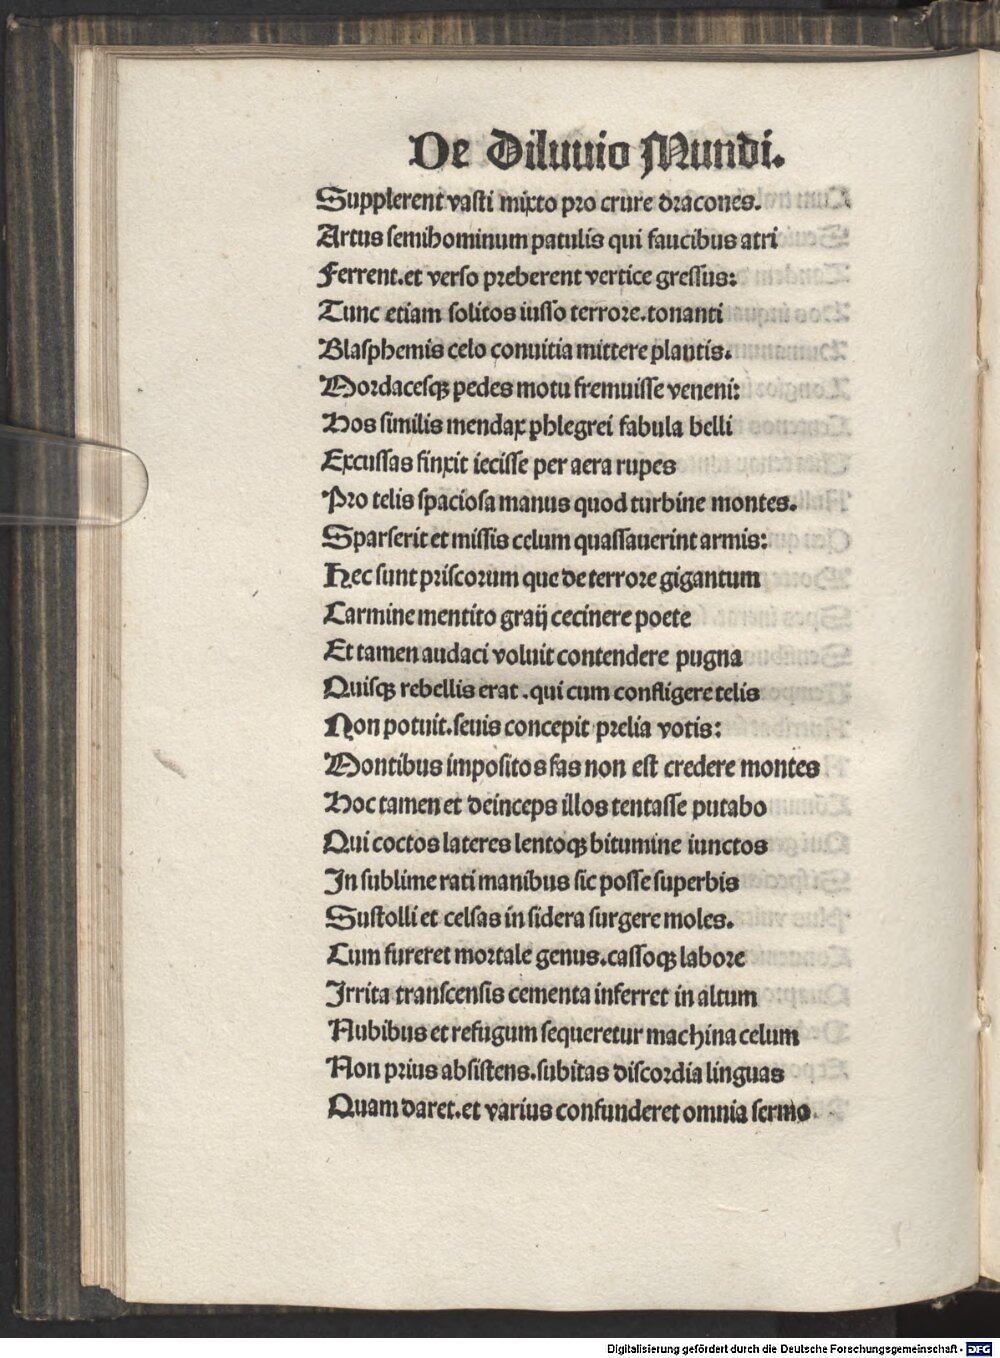 De Diluuio Mundi.
Supplerent vasti mixto pro crure dracones.
Artus semihominum patulis qui faucibus atri
Ferrent.et verso preberent vertice gressus:
Tunc etiam solitos iusso terrore.tonanti
Blasphemis celo conuitia mittere plautis.
Mordacesqꝫ pedes motu fremuisse veneni:
Hos similis mendax phlegrei fabula belli
Excussas finxit iecisse per aera rupes
Pro telis spaciosa manus quod turbine montes.
Sparserit et missis celum quassauerint armis:
Hec sunt priscorum que de terrore gigantum
Carmine mentito graij cecinere poete
Et tamen audaci voluit contendere pugna
Quisqꝫ rebellis erat.qui cum confligere telis
Non potuit.seuis concepit prelia votis:
Montibus impositos fas non est credere montes
Hoc tamen et deinceps illos tentasse putabo
Qui coctos lateres lentoqꝫ bitumine iunctos
In sublime rati manibus sic posse superbis
Sustolli et celsas in sidera surgere moles.
Cum fureret mortale genus.cassoqꝫ labore
Irrita transcensis cementa inferret in altum
Nubibus et refugum sequeretur machina celum
Non prius absistens.subitas discordia linguas
Quam daret.et varius confunderet omnia sermo.
Digitalisierung gefördert durch die Deutsche Forschungsgemeinschaft - DFG